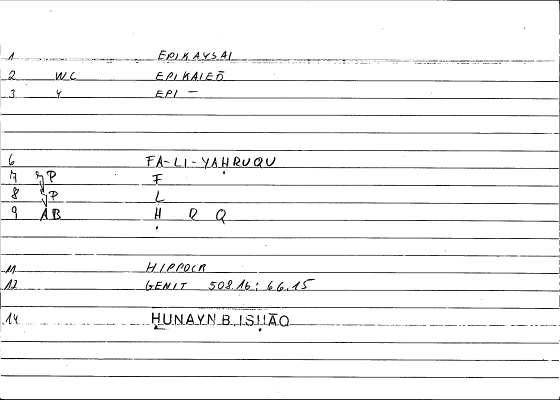 1 EPIKAYSAI
2 WC EPIKAIEŌ
3 Y EPI —
6 FA-LI-YAḤRUQU
7 P F
8 P L
9 AB Ḥ R Q
11 HIPPOCR
12 GENIT 508.16: 66.15
14 ḤUNAYN B. ISḤĀQ